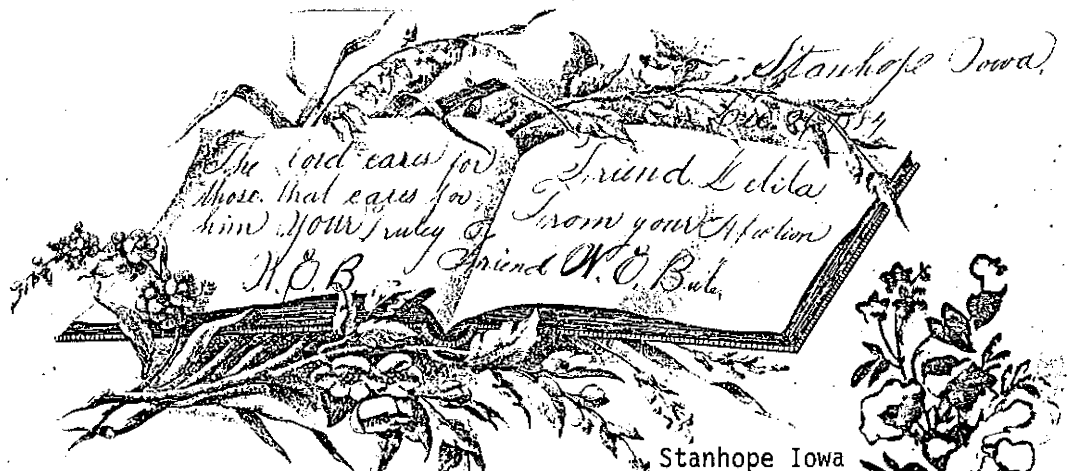 Stanhope Iowa.
Dec 84
The Lord cares for
those that cares for
him Your Truley
W. O. B.
Friend Delila
From your Afection
Friend W. O.
Stanhope Iowa